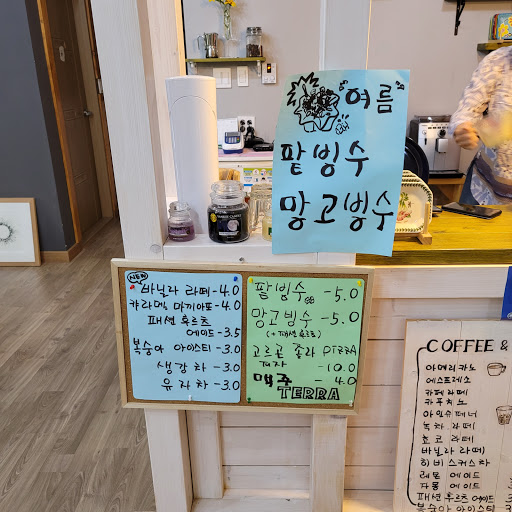 "여름"
팥빙수
망고빙수
NEW
바닐라 라떼 - 4.0
캬라멜 마끼아또 - 4.0
패션 후르츠
에이드 - 3.5
복숭아 아이스티 - 3.0
생강차 - 3.0
유자차 - 3.0
팥빙수 - 5.0
망고빙수 - 5.0
(+패션후르츠)
고르곤 졸라 PIZZA
피자 - 10.0
맥주 - 4.0
TERRA
COFFEE &
아메리카노
에스프레소
카페라떼
카푸치노
아인슈페너
녹차 라떼
초코 라떼
바닐라 라떼
히비스커스차
레몬 에이드
자몽 에이드
패션후르츠 에이드
복숭아 아이스티